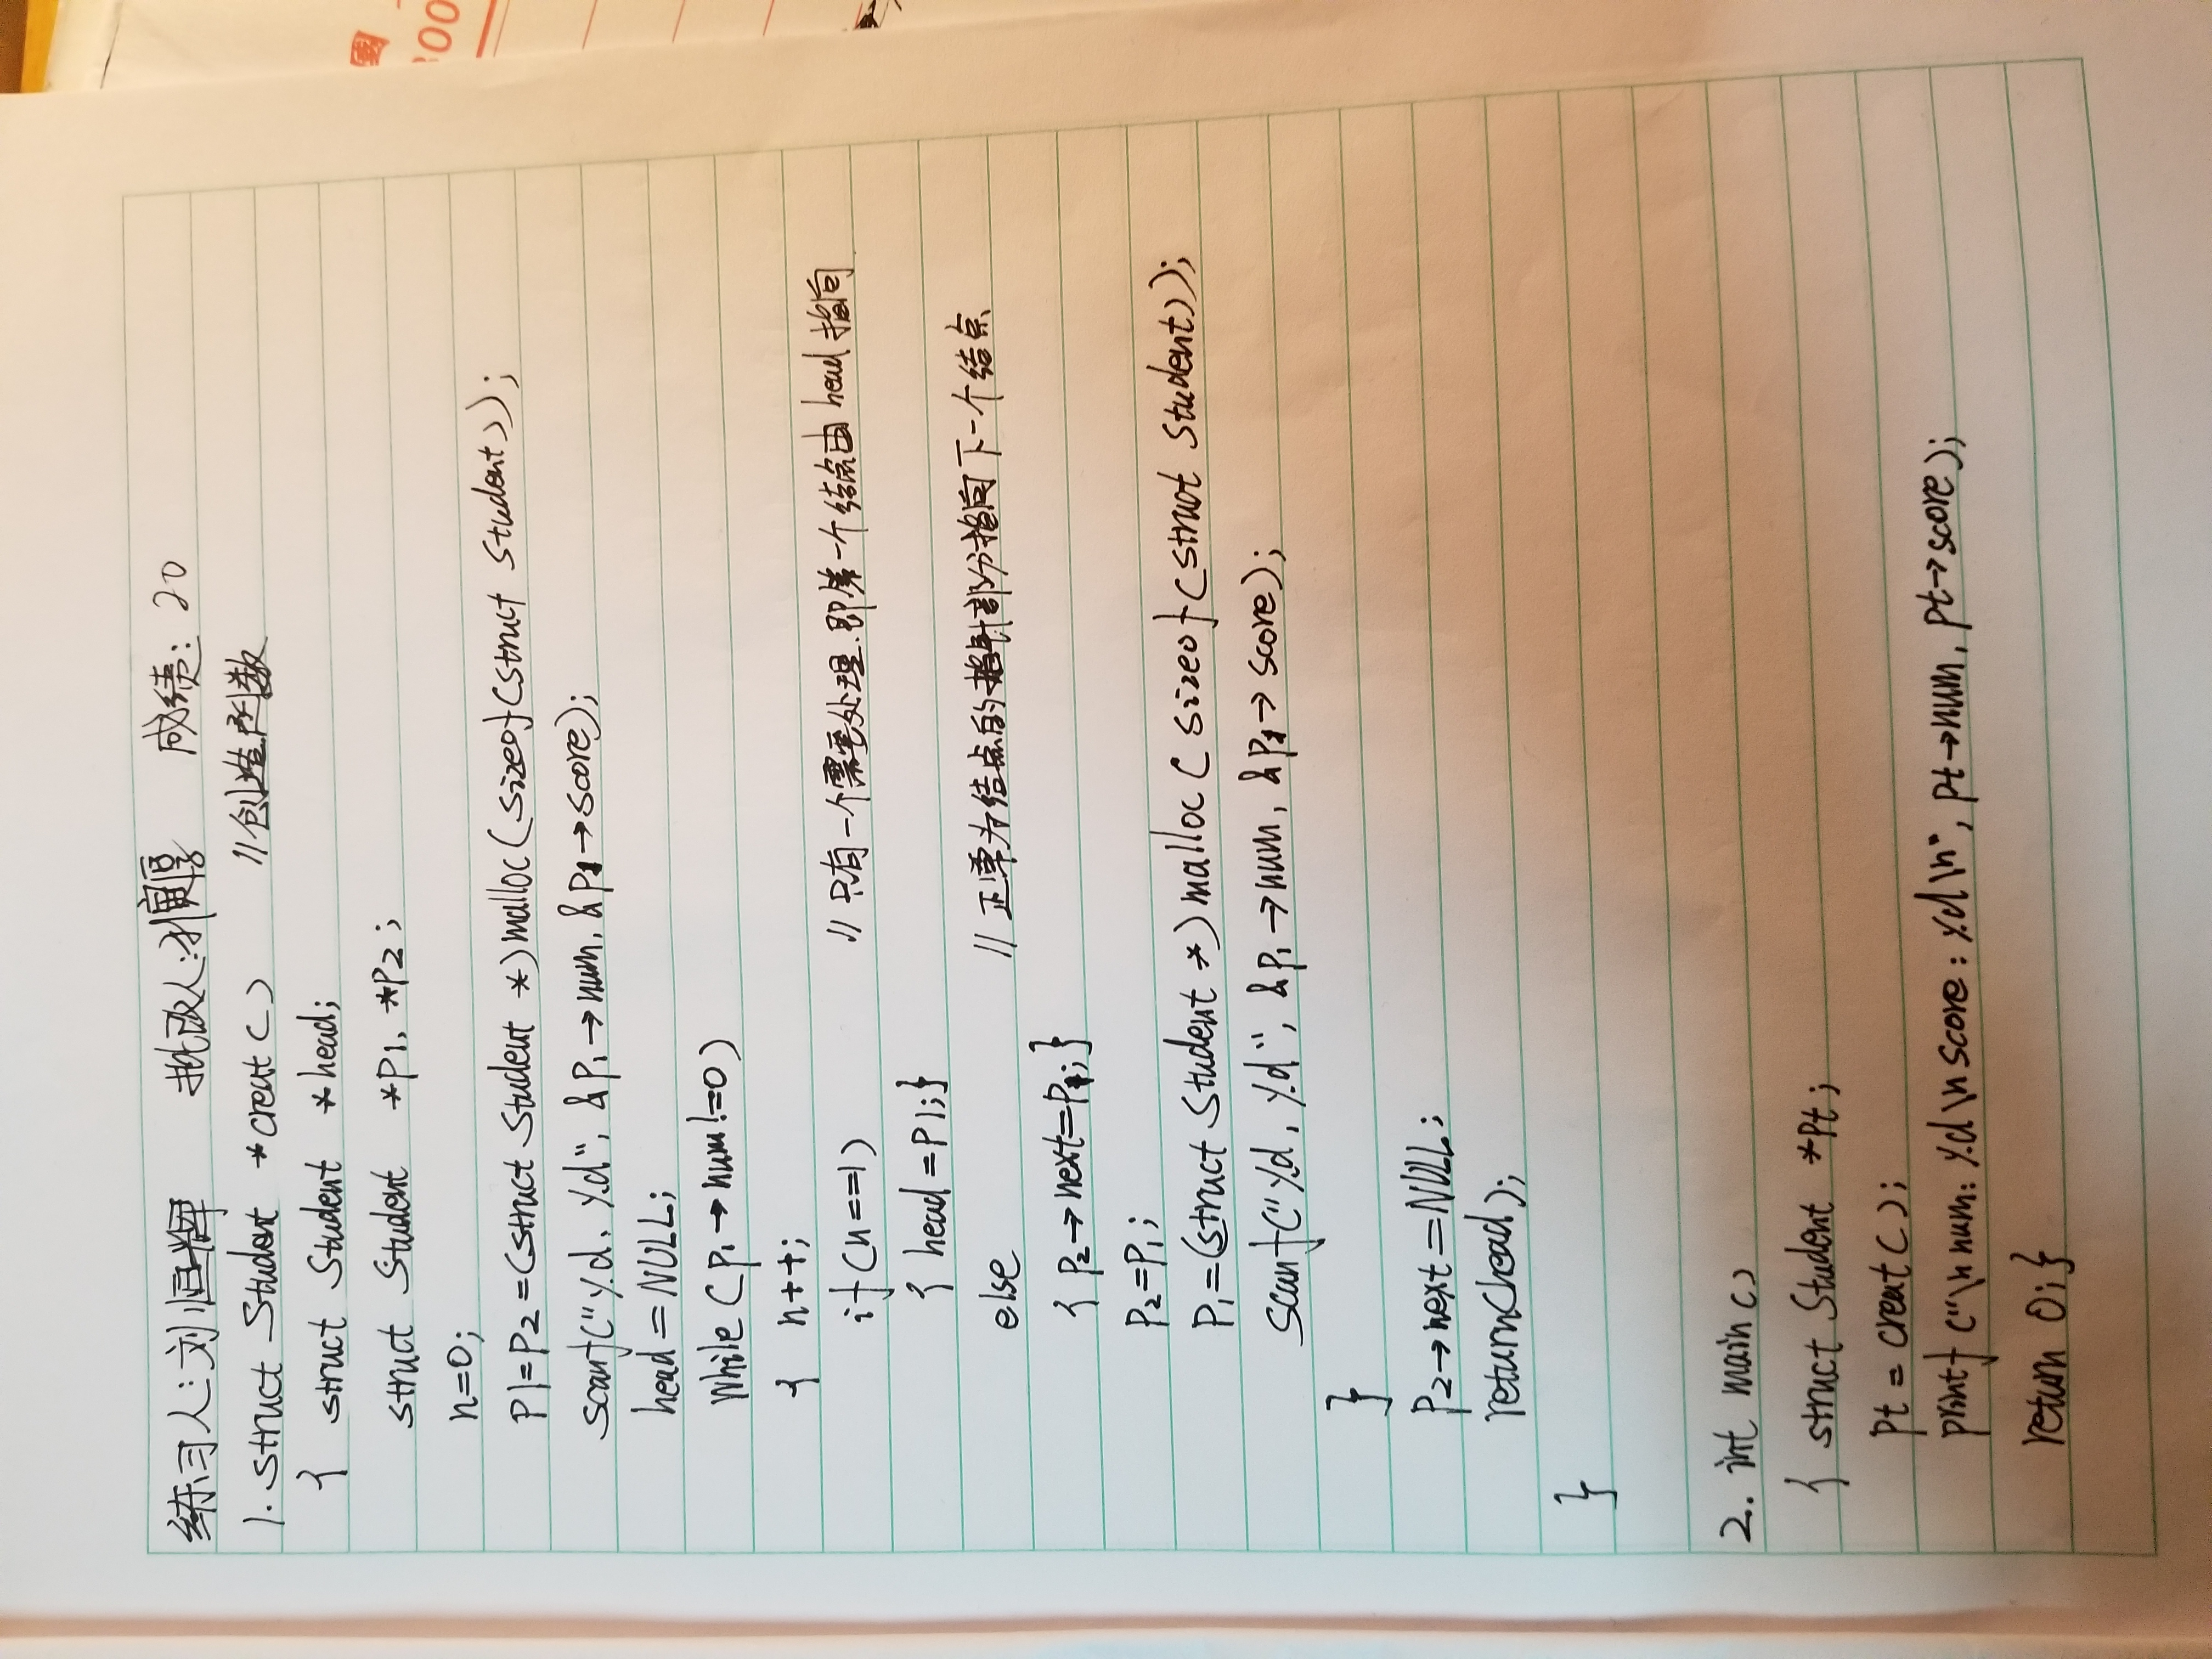 练习人:刘恒辉 批改人: 成绩: 20
1. struct Student *creat() //创造函数
{ struct Student *head;
struct Student *p1, *p2;
n=0;
p1=p2=(struct Student *)malloc(sizeof(struct Student));
scanf("%d, %d", &p1→num, &p1→score);
head=NULL;
while(p1→num!=0)
{ n++;
if(n==1) //只有一个需要处理.即第一个结点由head指向
{ head=p1;}
else //正常为结点的指针部分指向下一个结点
{ p2→next=p1;}
p2=p1;
p1=(struct Student *)malloc(sizeof(struct Student));
scanf("%d, %d", &p1→num, &p1→score);
}
p2→next=NULL;
return(head);
}
2. int main()
{ struct Student *pt;
pt=creat();
printf("\n num: %d \n score: %d \n", pt→num, pt→score);
return 0;}
300